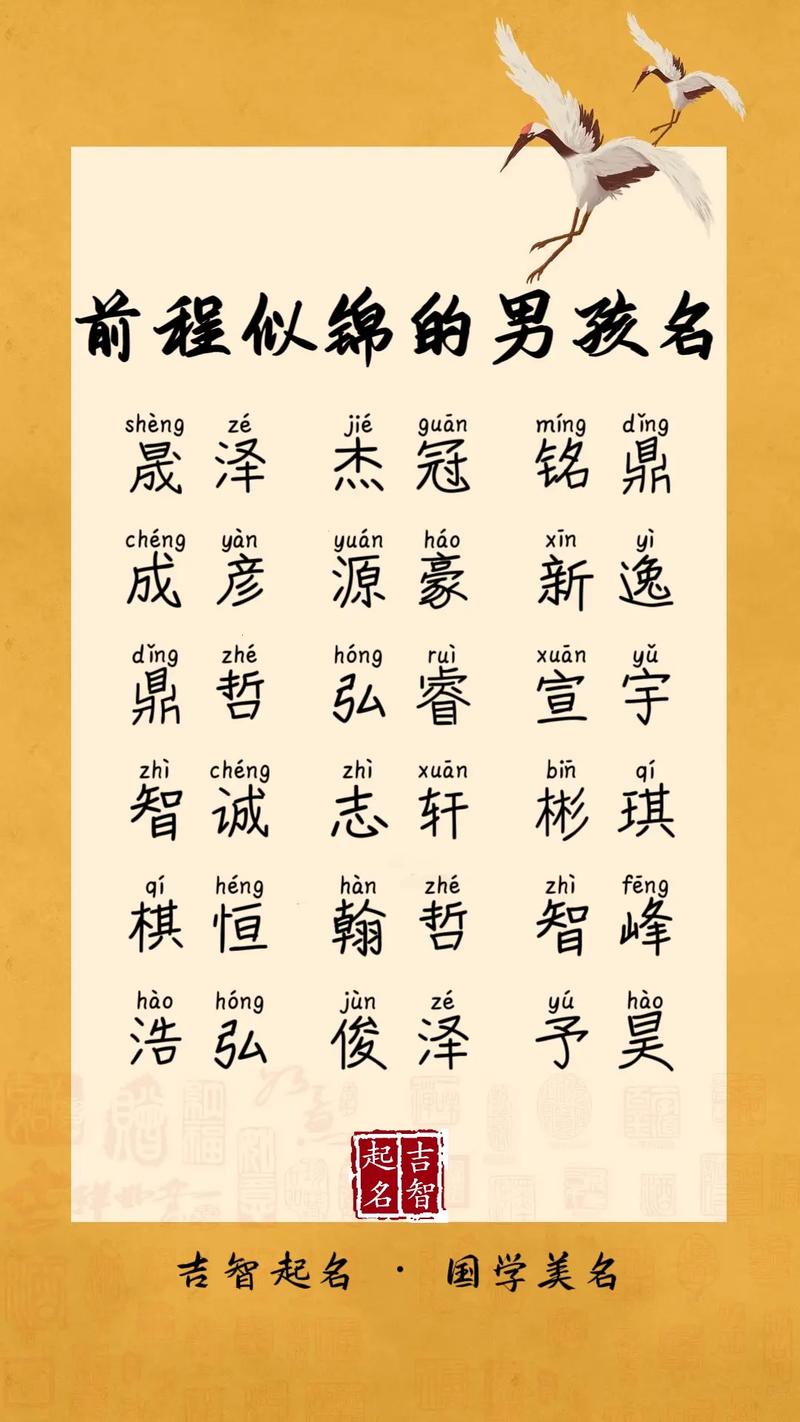 前程似锦的男孩名
shèng zé jié guān míng dǐng
晟泽 杰冠 铭鼎
chéng yàn yuán háo xīn yì
成彦 源豪 新逸
dǐng zhé hóng ruì xuān yǔ
鼎哲 弘睿 宣宇
zhì chéng zhì xuān bīn qí
智诚 志轩 彬琪
qí héng hàn zhé zhì fēng
棋恒 翰哲 智峰
hào hóng jùn zé yú hào
浩弘 俊泽 予昊
吉智
起名
吉智起名 · 国学美名